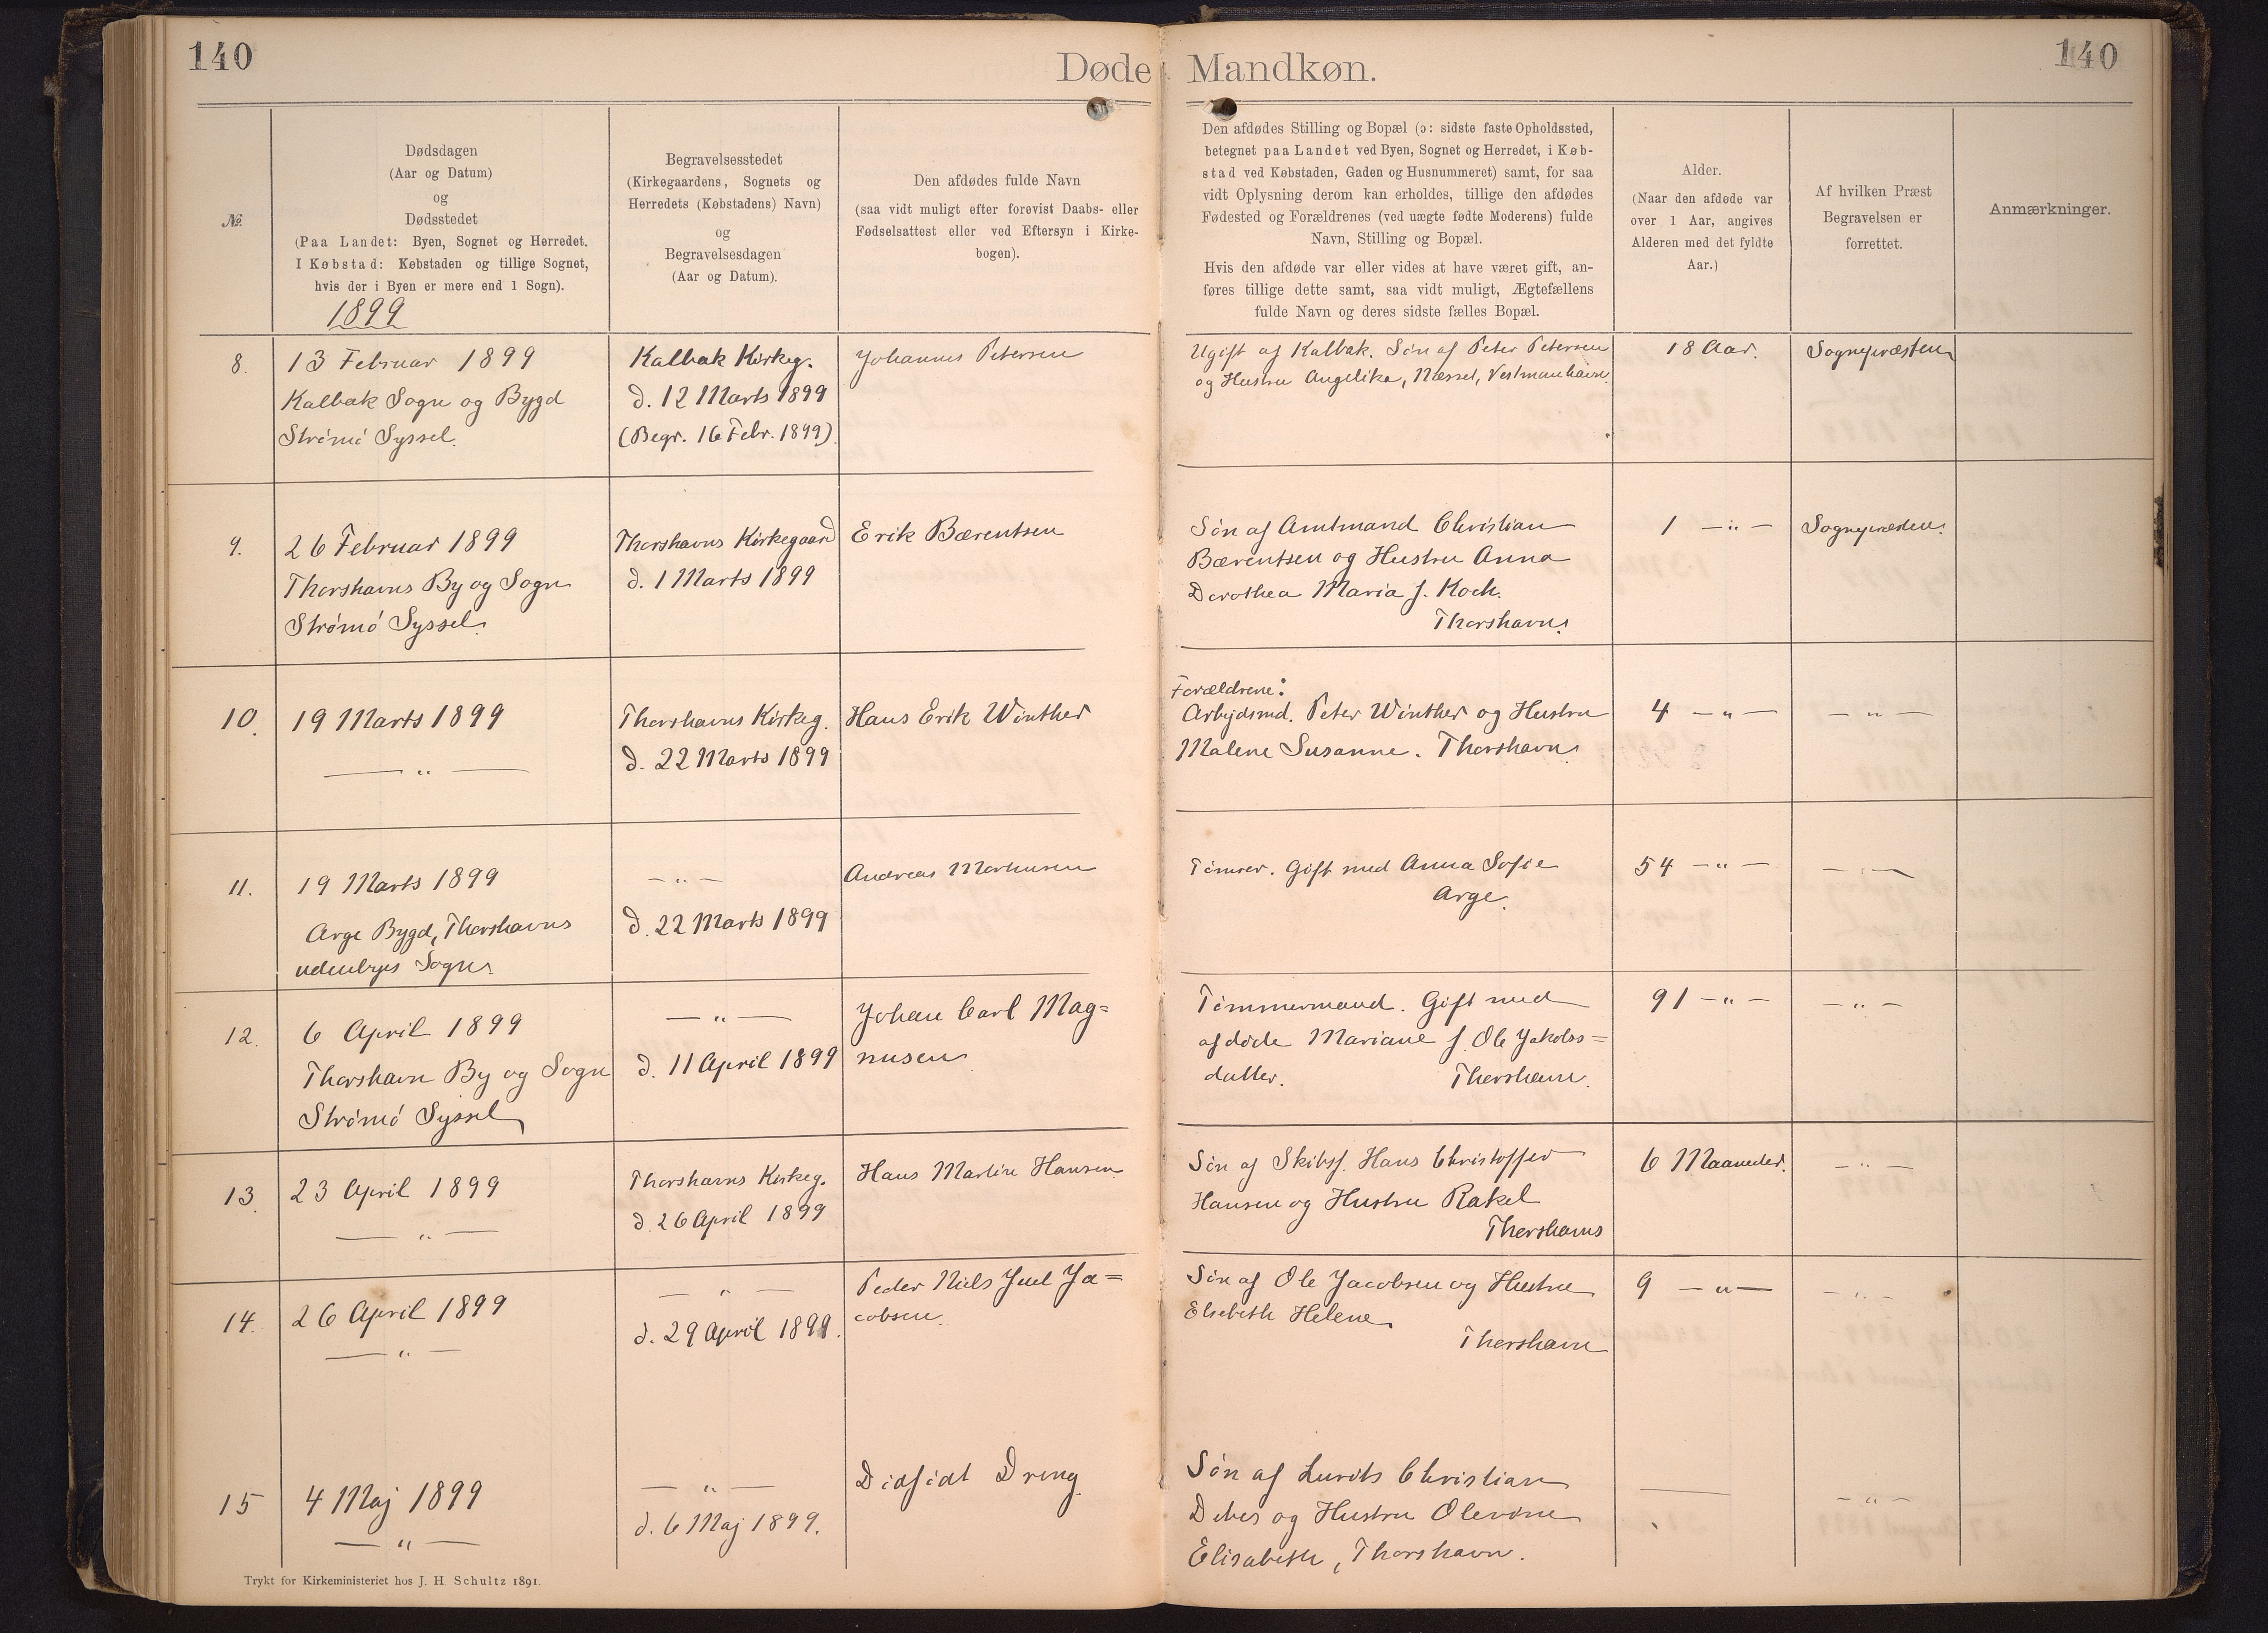 140
Døde Mandkøn.
140
№
Dødsdagen
(Aar og Datum)
og
Dødsstedet
(Paa Landet: Byen, Sognet og Herredet.
I Købstad: Købstaden og tillige Sognet,
hvis der i Byen er mere end 1 Sogn).
1899
Begravelsesstedet
(Kirkegaardens, Sognets og
Herredets (Købstadens) Navn)
og
Begravelsesdagen
(Aar og Datum).
Den afdødes fulde Navn
(saa vidt muligt efter forevist Daabs- eller
Fødselsattest eller ved Eftersyn i Kirke-
bogen).
Den afdødes Stilling og Bopæl (ɔ: sidste faste Opholdssted,
betegnet paa Landet ved Byen, Sognet og Herredet, i Køb-
stad ved Købstaden, Gaden og Husnummeret) samt, for saa
vidt Oplysning derom kan erholdes, tillige den afdødes
Fødested og Forældrenes (ved uægte fødte Moderens) fulde
Navn, Stilling og Bopæl.
Hvis den afdøde var eller vides at have været gift, an-
føres tillige dette samt, saa vidt muligt, Ægtefællens
fulde Navn og deres sidste fælles Bopæl.
Alder.
(Naar den afdøde var
over 1 Aar, angives
Alderen med det fyldte
Aar.)
Af hvilken Præst
Begravelsen er
forrettet.
Anmærkninger.
8.
13 Februar 1899
Kalbak Sogn og Bygd
Strömö Syssel.
Kalbak Kirkeg.
d. 12 Marts 1899
(Begr. 16 Febr. 1899).
Johannes Petersen
Ugift af Kalbak. Søn af Peter Petersen
og Hustru Angelika, Næssel, Vestmanhavn.
18 Aar.
Sognepræsten
9.
26 Februar 1899
Thorshavns By og Sogn
Strömö Syssel.
Thorshavns Kirkegaard
d. 1 Marts 1899
Erik Bærentsen
Søn af Amtmand Christian
Bærentsen og Hustru Anna
Dorothea Maria f. Koch.
Thorshavn.
1 — " —
Sognepræsten.
10.
19 Marts 1899
— " —
Thorshavns Kirkeg.
d. 22 Marts 1899
Hans Erik Winther
Forældrene:
Arbejdsmd. Peter Winther og Hustru
Malene Susanne. Thorshavn.
4 — " —
— " —
11.
19 Marts 1899
Arge Bygd, Thorshavns
udenbyes Sogn.
— " —
d. 22 Marts 1899
Andreas Morhusen
Tömrer. Gift med Anna Sofie
Arge.
54 — " —
— " —
12.
6 April 1899
Thorshavn By og Sogn
Strömö Syssel
— " —
d. 11 April 1899
Johan Carl Mag=
nusen
Tömmermand. Gift med
afdöde Mariane f. Ole Jakobs=
datter. Thorshavn.
91 — " —
— " —
13.
23 April 1899
— " —
Thorshavns Kirkeg.
d. 26 April 1899
Hans Martin Hansen
Søn af Skibsf. Hans Christoffer
Hansen og Hustru Rakel
Thorshavns
6 Maaneder.
— " —
14.
26 April 1899
— " —
— " —
d. 29 April 1899.
Peder Niels Juel Ja=
cobsen.
Søn af Ole Jacobsen og Hustru
Elsebeth Helene.
Thorshavn
9 — " —
— " —
15
4 Maj 1899
— " —
— " —
d. 6 Maj 1899.
Dödfödt Dreng.
Søn af Lurits Christian
Debes og Hustru Olevine
Elisabeth, Thorshavn.
—
— " —
Trykt for Kirkeministeriet hos J. H. Schultz 1891.